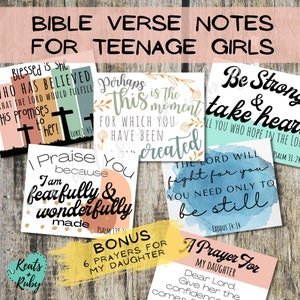 BIBLE VERSE NOTES
FOR TEENAGE GIRLS
Blessed is She
WHO HAS BELIEVED
THAT THE LORD WOULD FULFILL
His promises
to her!
LUKE 1:45
Perhaps
this is the
moment
FOR WHICH YOU
HAVE BEEN
created
Be Strong
&
take heart
ALL YOU WHO HOPE IN THE LORD
I Praise You
because
I am
fearfully &
wonderfully
made
PSALM 139:14
THE LORD WILL
fight for you
YOU NEED ONLY TO
be still
EXODUS 14:14
BONUS
6 PRAYERS FOR
MY DAUGHTER
A Prayer For
MY DAUGHTER
Dear Lord,
Give her the
Keats
Ruby